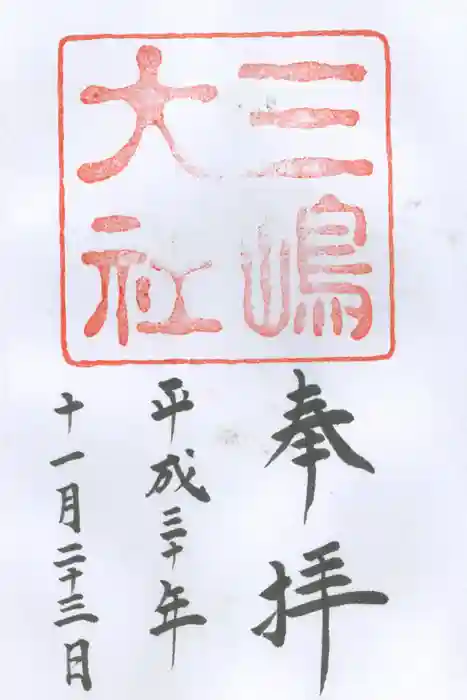 三嶋
大社
奉拝
平成三十年
十一月二十三日